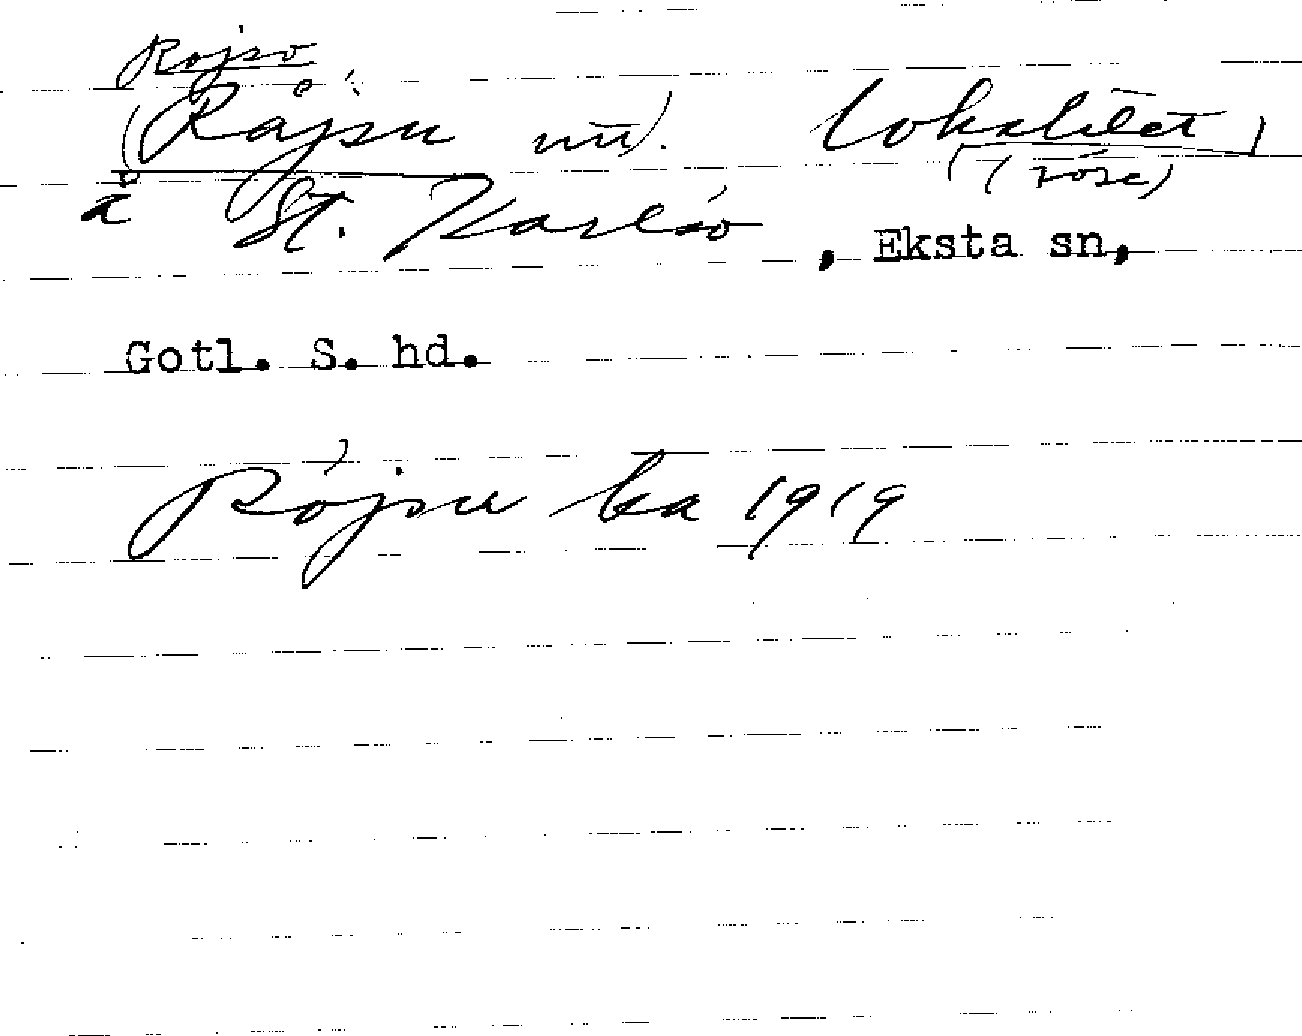 Rojsö
(Råjsu un). lokalitet
(röse)
å St. Karlsö, Eksta sn,
Gotl. S. hd.
Röjsu ka 1919